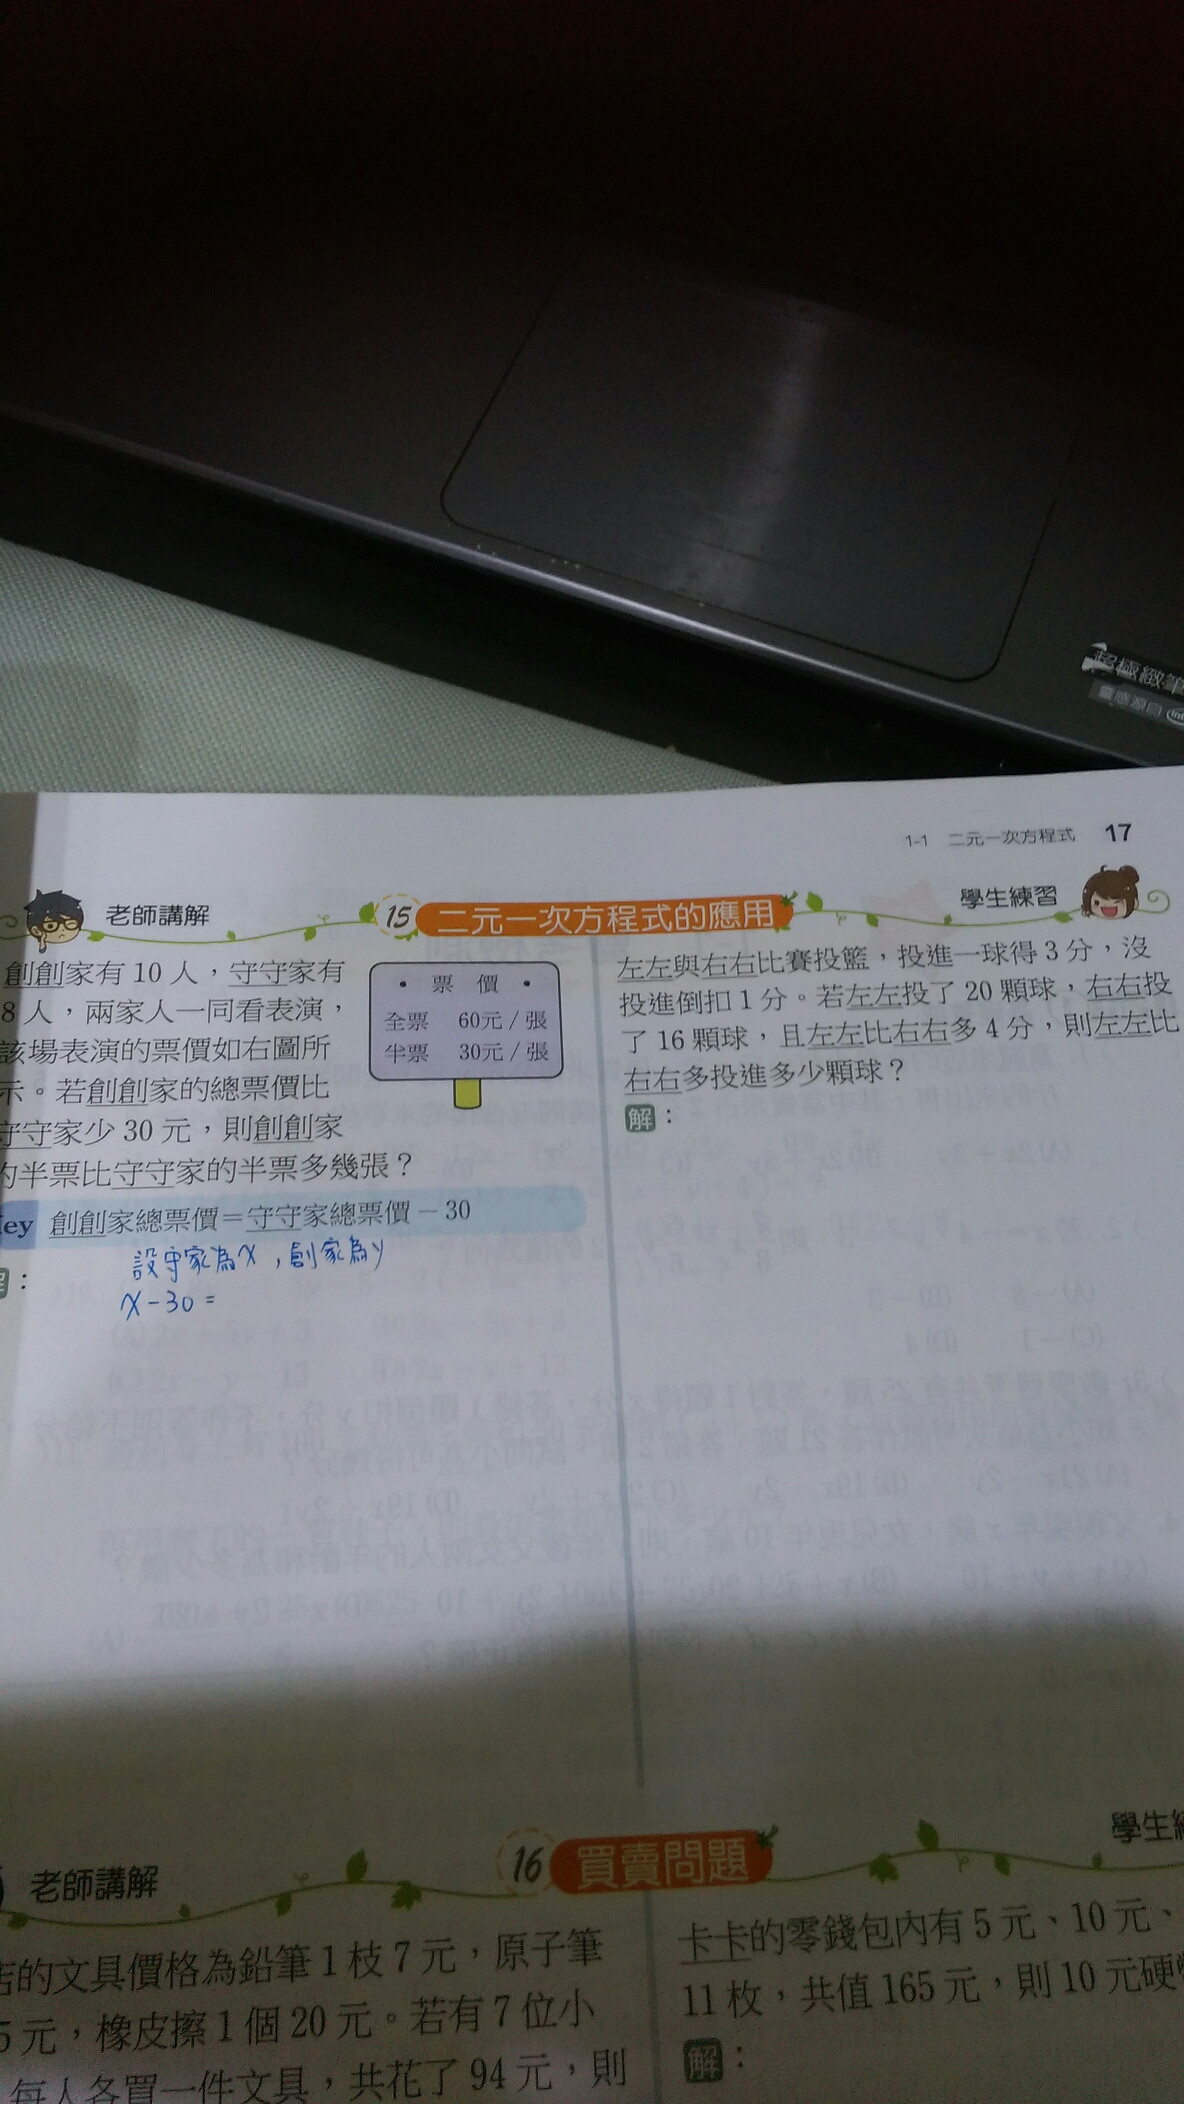 超極緻筆
靈感源自
1-1 二元一次方程式 17
老師講解
15 二元一次方程式的應用
學生練習
創創家有 10 人，守守家有
8 人，兩家人一同看表演，
該場表演的票價如右圖所
示。若創創家的總票價比
守守家少 30 元，則創創家
的半票比守守家的半票多幾張？
• 票 價 •
全票 60元/張
半票 30元/張
創創家總票價＝守守家總票價－30
設守家為x，創家為y
x-30=
左左與右右比賽投籃，投進一球得 3 分，沒
投進倒扣 1 分。若左左投了 20 顆球，右右投
了 16 顆球，且左左比右右多 4 分，則左左比
右右多投進多少顆球？
解：
老師講解
16 買賣問題
學生
店的文具價格為鉛筆 1 枝 7 元，原子筆
5 元，橡皮擦 1 個 20 元。若有 7 位小
每人各買一件文具，共花了 94 元，則
卡卡的零錢包內有 5 元、10 元、
11 枚，共值 165 元，則 10 元硬幣
解：